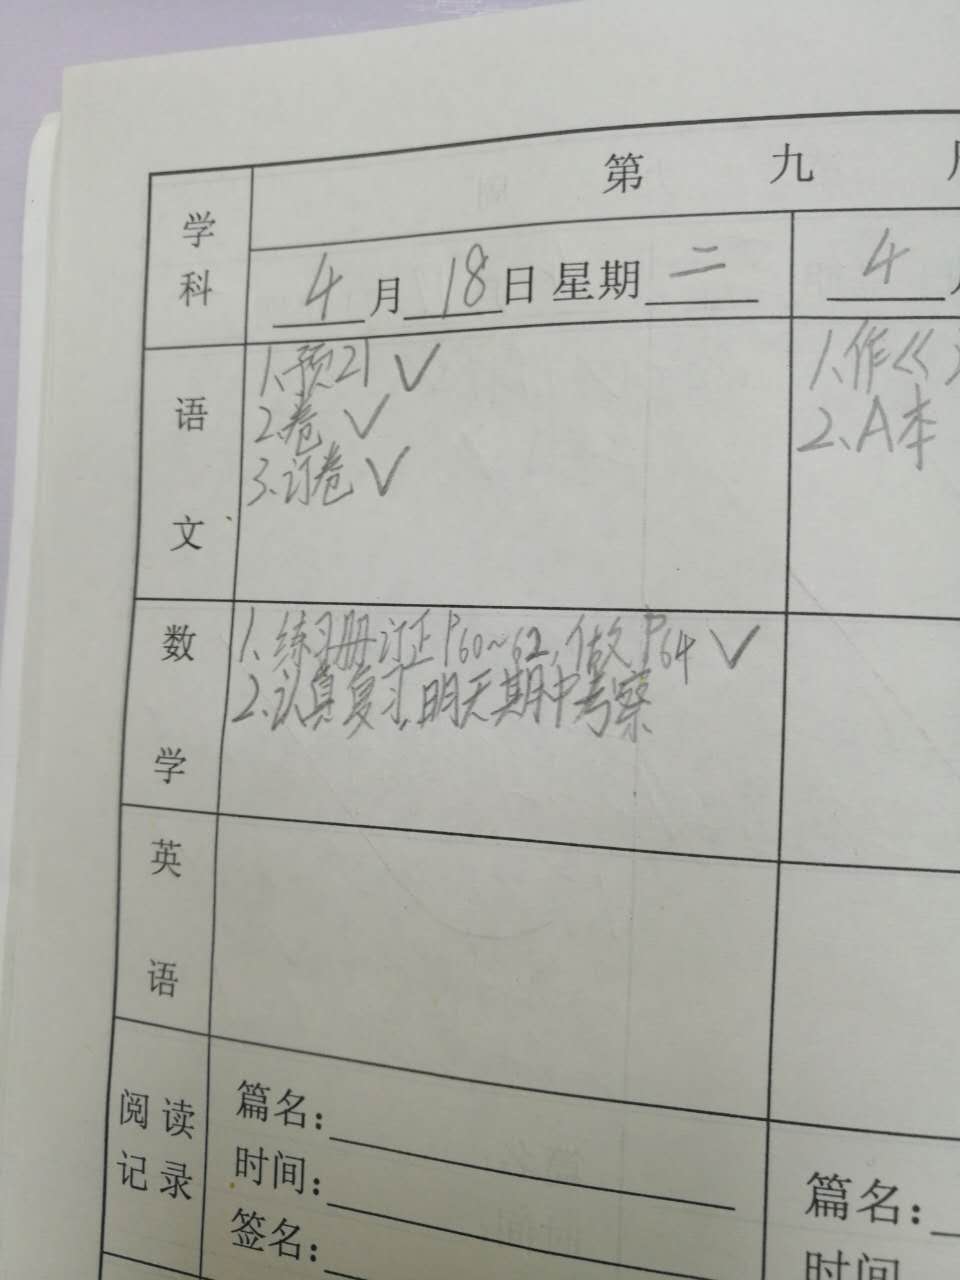 第 九
学科
4月18日 星期二
4
语文
1.预21 ✓
2.卷 ✓
3.订卷 ✓
1.作《
2.A本
数学
1.练习册订正P60~62,做P64 ✓
2.认真复习,明天期中考察
英语
阅读记录
篇名:
时间:
签名:
篇名:
时间